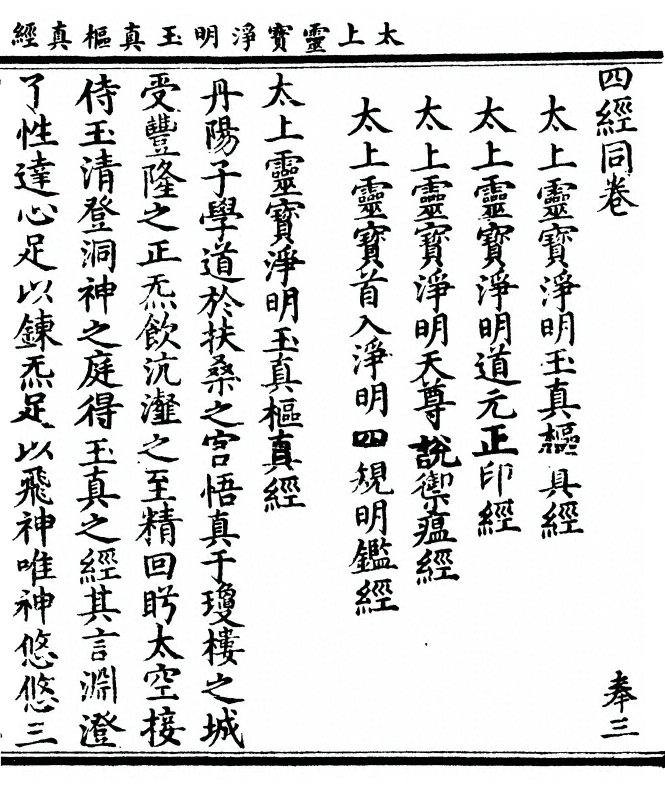 太上靈寳淨明玉真樞真經
四經同卷
奉三
太上靈寳淨明玉真樞真經
太上靈寳淨明道元正印經
太上靈寳淨明天尊說禦瘟經
太上靈寳首入淨明四規明鑑經
太上靈寳淨明玉真樞真經
丹陽子學道於扶桑之宫悟真于瓊樓之城
受豐隆之正炁飲沆瀣之至精回眄太空接
侍玉清登洞神之庭得玉真之經其言淵澄
了性達心足以鍊炁足以飛神唯神悠悠三